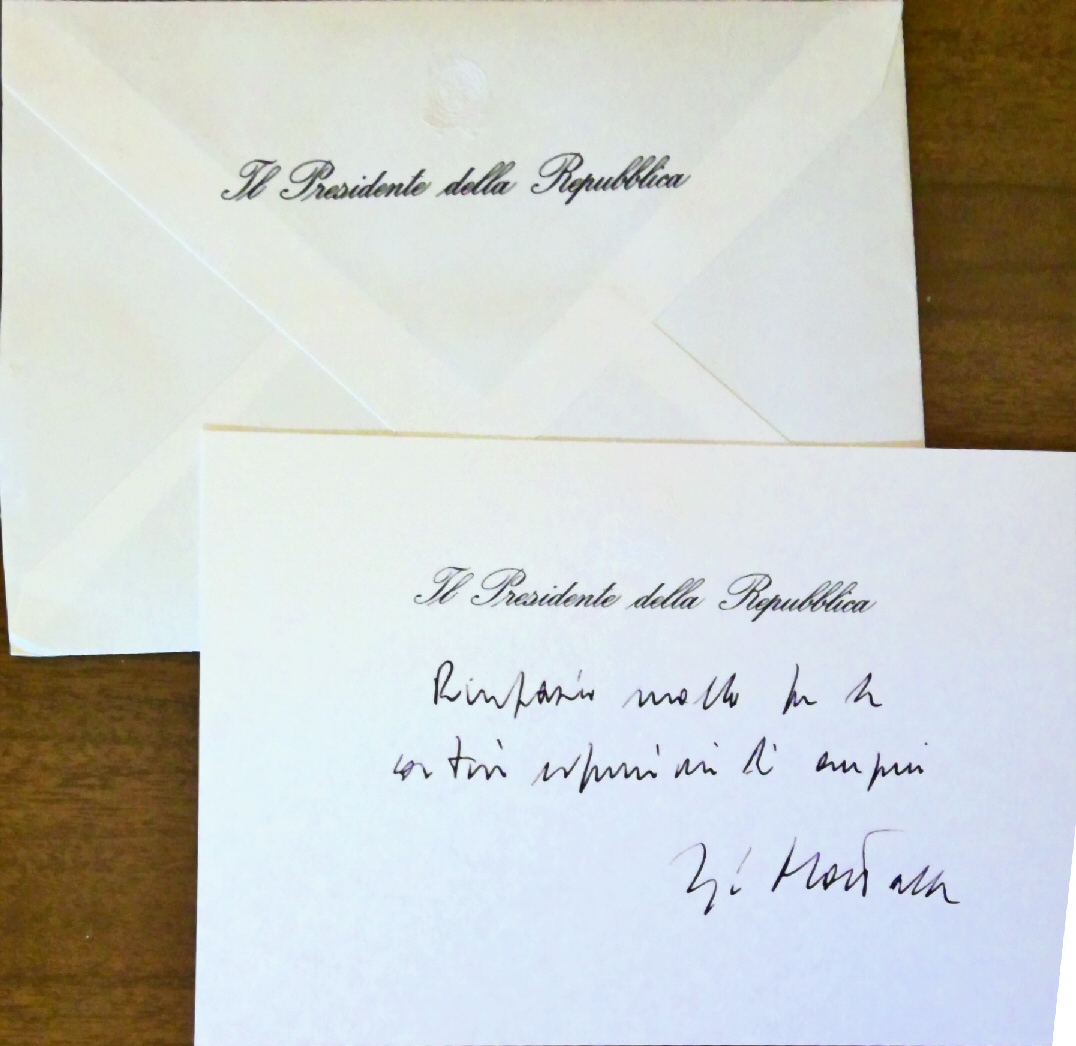 Il Presidente della Repubblica
Il Presidente della Repubblica
Ringrazio molto per le
cortesi espressioni di auguri
Sergio Mattarella